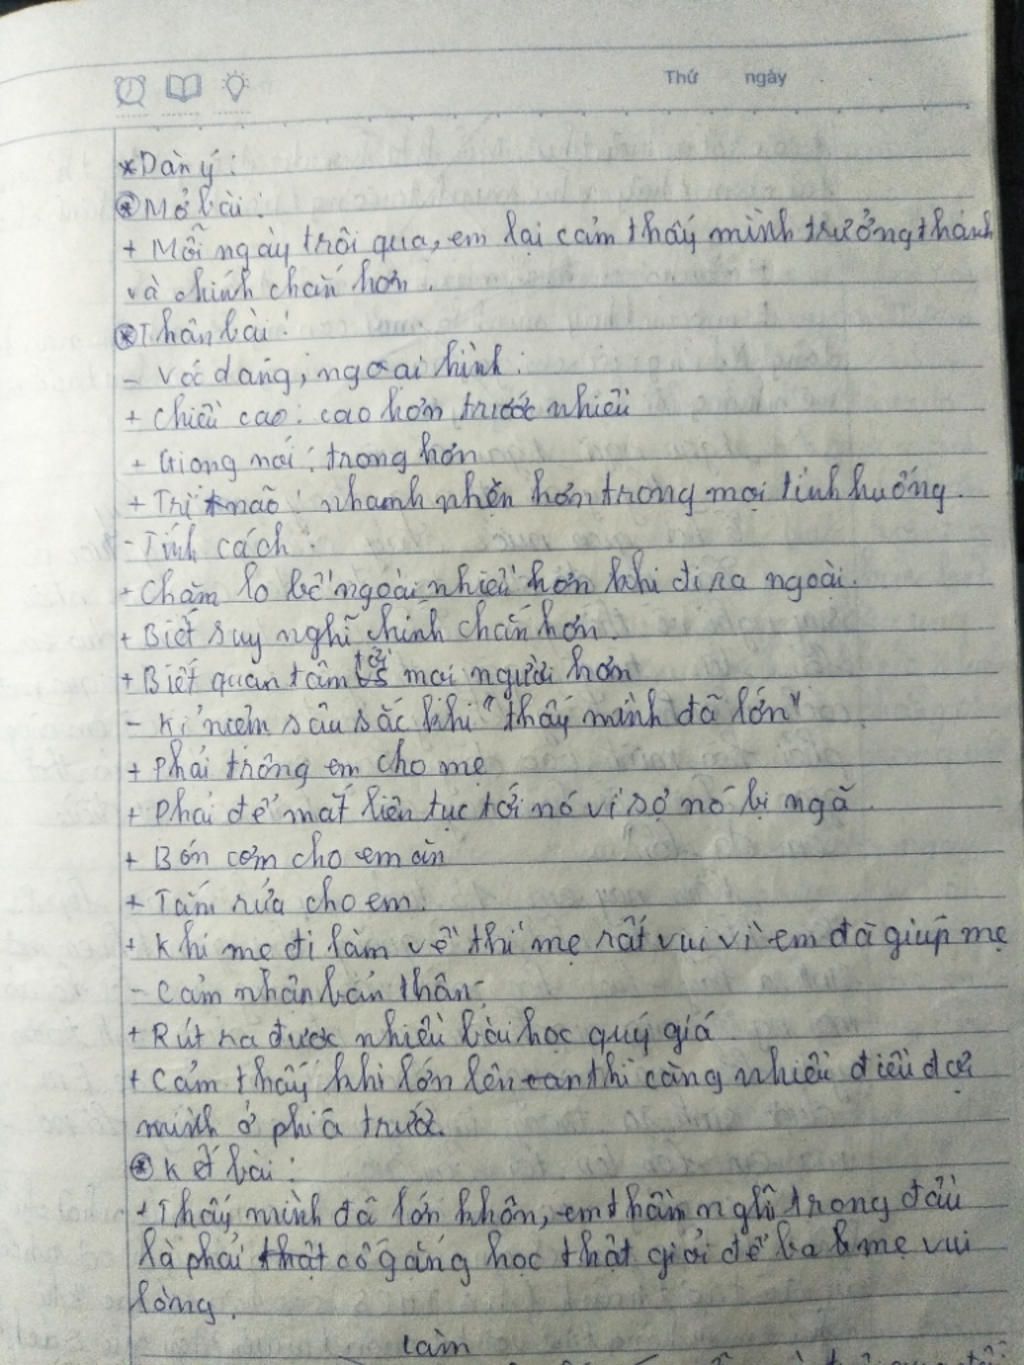 Thứ ngày
* Dàn ý:
* Mở bài:
+ Mỗi ngày trôi qua, em lại cảm thấy mình trưởng thành
và chính chắn hơn.
* Thân bài:
- Vóc dáng, ngoại hình:
+ Chiều cao: cao hơn trước nhiều
+ Giọng nói: trong hơn
+ Trí não: nhanh nhẹn hơn trong mọi tình huống.
- Tính cách:
+ Chăm lo bề ngoài nhiều hơn khi đi ra ngoài.
+ Biết suy nghĩ chính chắn hơn.
+ Biết quan tâm tới mọi người hơn
- Kỉ niệm sâu sắc khi "thấy mình đã lớn"
+ Phải trông em cho mẹ
+ Phải để mắt liên tục tới nó vì sợ nó bị ngã
+ Bón cơm cho em ăn
+ Tắm rửa cho em.
+ Khi mẹ đi làm về thì mẹ rất vui vì em đã giúp mẹ
- Cảm nhận bản thân:
+ Rút ra được nhiều bài học quý giá
+ Cảm thấy khi lớn lên thì càng nhiều điều đợi
mình ở phía trước.
* Kết bài:
+ Thấy mình đã lớn khôn, em thầm nghĩ trong đầu
là phải cố gắng học thật giỏi để ba & mẹ vui
lòng.
Làm